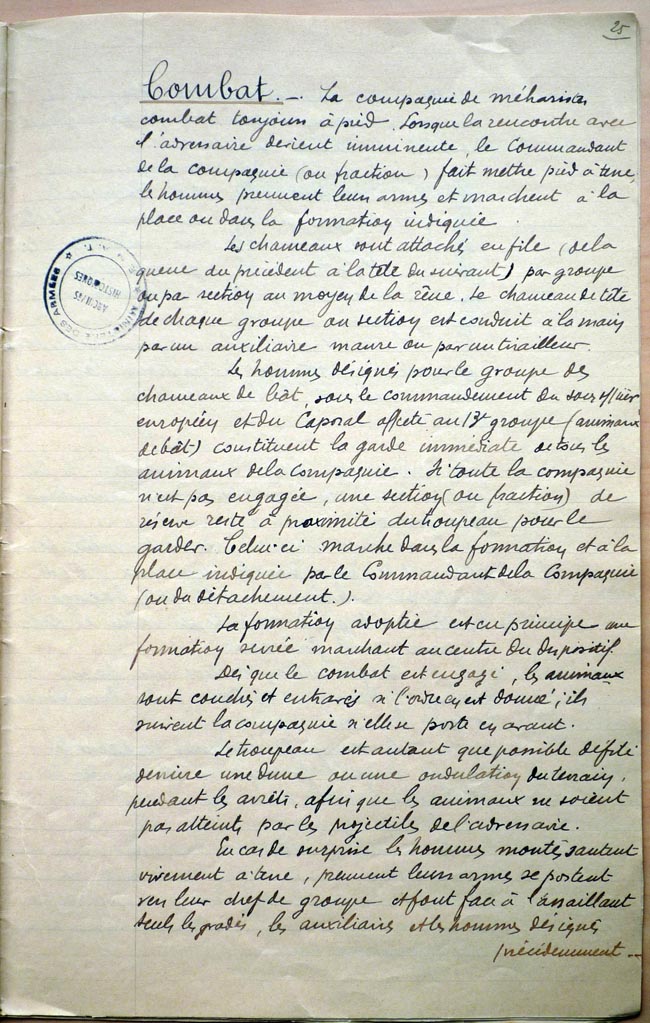 25
Combat. — La compagnie de méharistes
combat toujours à pied. Lorsque la rencontre avec
l'adversaire devient imminente, le Commandant
de la compagnie (ou fraction) fait mettre pied à terre,
les hommes prennent leurs armes et marchent à la
place ou dans la formation indiquée.
Les chameaux sont attachés en file (de la
queue du précédent à la tête du suivant) par groupe
ou par section au moyen de la rêne. Le chameau de tête
de chaque groupe ou section est conduit à la main
par un auxiliaire maure ou par un tirailleur.
Les hommes désignés pour le groupe des
chameaux de bât, sous le commandement du sous officier
européen et du Caporal affecté au 13e groupe (animaux
de bât) constituent la garde immédiate de tous les
animaux de la compagnie. Si toute la compagnie
n'est pas engagée, une section (ou fraction) de
réserve reste à proximité du troupeau pour le
garder. Celui-ci marche dans la formation et à la
place indiquée par le Commandant de la Compagnie
(ou du détachement.).
La formation adoptée est en principe une
formation serrée marchant au centre du dispositif.
Dès que le combat est engagé, les animaux
sont couchés et entravés si l'ordre en est donné; ils
suivent la compagnie si elle se porte en avant.
Le troupeau est autant que possible défilé
derrière une dune ou une ondulation du terrain,
pendant les arrêts, afin que les animaux ne soient
pas atteints par les projectiles de l'adversaire.
En cas de surprise les hommes montés sautent
vivement à terre, prennent leurs armes se portent
vers leur chef de groupe et font face à l'assaillant
seuls les gradés, les auxiliaires et les hommes désignés
précédemment —
MINISTÈRE DES ARMÉES
ARCHIVES
HISTORIQUES